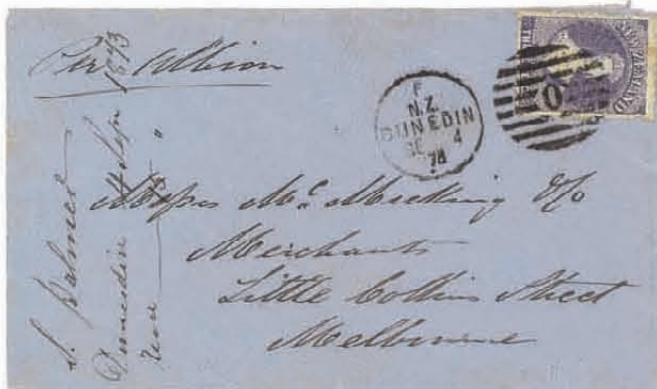 Per Albion
F
N.Z.
DUNEDIN
SE 4
74
O
Messrs McMecking & Co
Merchants
Little Collins Street
Melbourne
S. Palmer
Dunedin 4 Sepr 1873